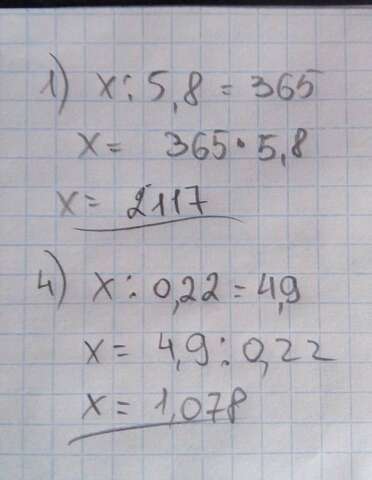 1) x : 5,8 = 365
x = 365 · 5,8
x = 2117
4) x : 0,22 = 4,9
x = 4,9 : 0,22
x = 1,078